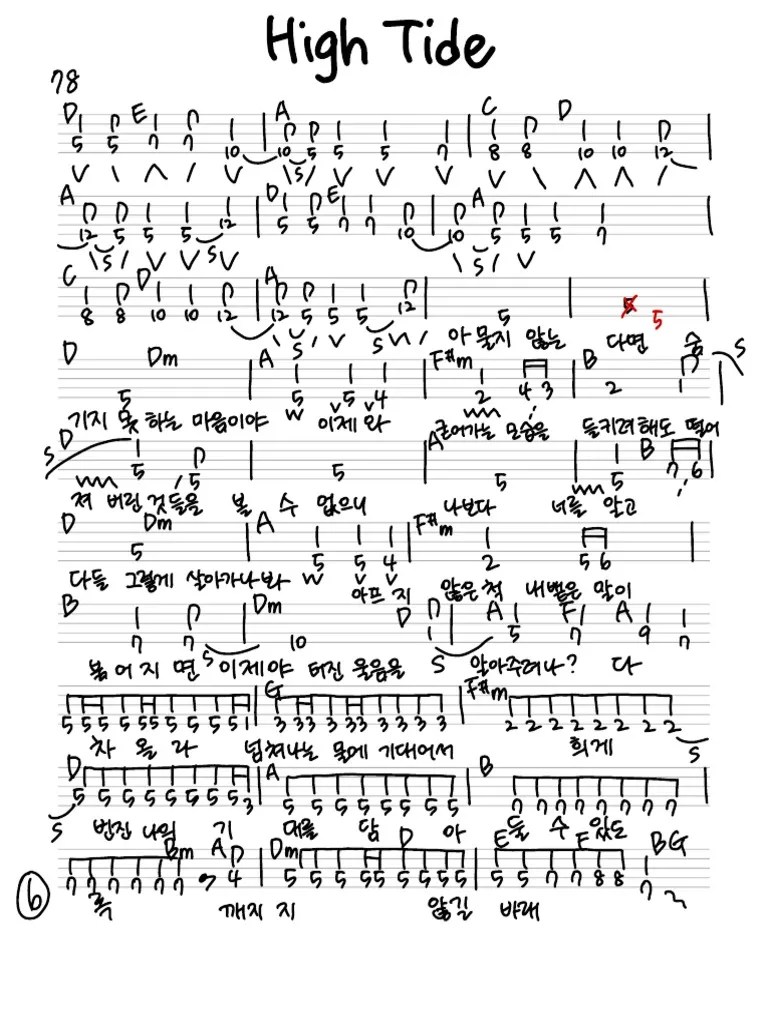 High Tide
78
D E A C D
5 5 7 7 10 10 5 5 5 7 8 8 10 10 12
V \ Λ / V \ S / V V V V \ Λ Λ /
A D E A
12 5 5 5 12 5 5 7 7 10 10 5 5 5 7
\ S / V V S V \ S / V
C D A
8 8 10 10 12 12 5 5 5 12 5 5
S S
아물지 않는 다면 숨
D Dm A F#m B S
5 5 5 4 2 4 3 2 1
기지 못하는 마음이야 이제 와 굳어가는 모습을 들키려해도 떨어
S D A B
5 5 5 5 5 7 6
져 버린것들을 볼 수 없으니 나보다 너를 알고
D Dm A F#m
5 5 5 4 2 5 6
다들 그렇게 살아가나봐 아프지 않은척 내뱉은 말이
B Dm D A F A
7 7 10 1 5 7 9 7
S S
붉어지면 이제야 터진 울음을 알아주려나? 다
G F#m
5 55 5 55 5 5 5 51 3 33 3 33 3 3 3 3 2 2 2 2 2 2 2 2
S
차 올라 넘쳐나는 물에 기대어서 희게
D A B
5 5 5 5 5 5 5 3 5 5 5 5 5 5 5 5 7 7 7 7 7 7 7 7
S 번진 나의 기 대를 담 아 들 수 있도
Bm A D Dm D E F B G
7 7 7 7 7 7 4 5 5 5 55 5 5 5 5 5 7 7 8 8 7
6
록 깨지지 않길 바래